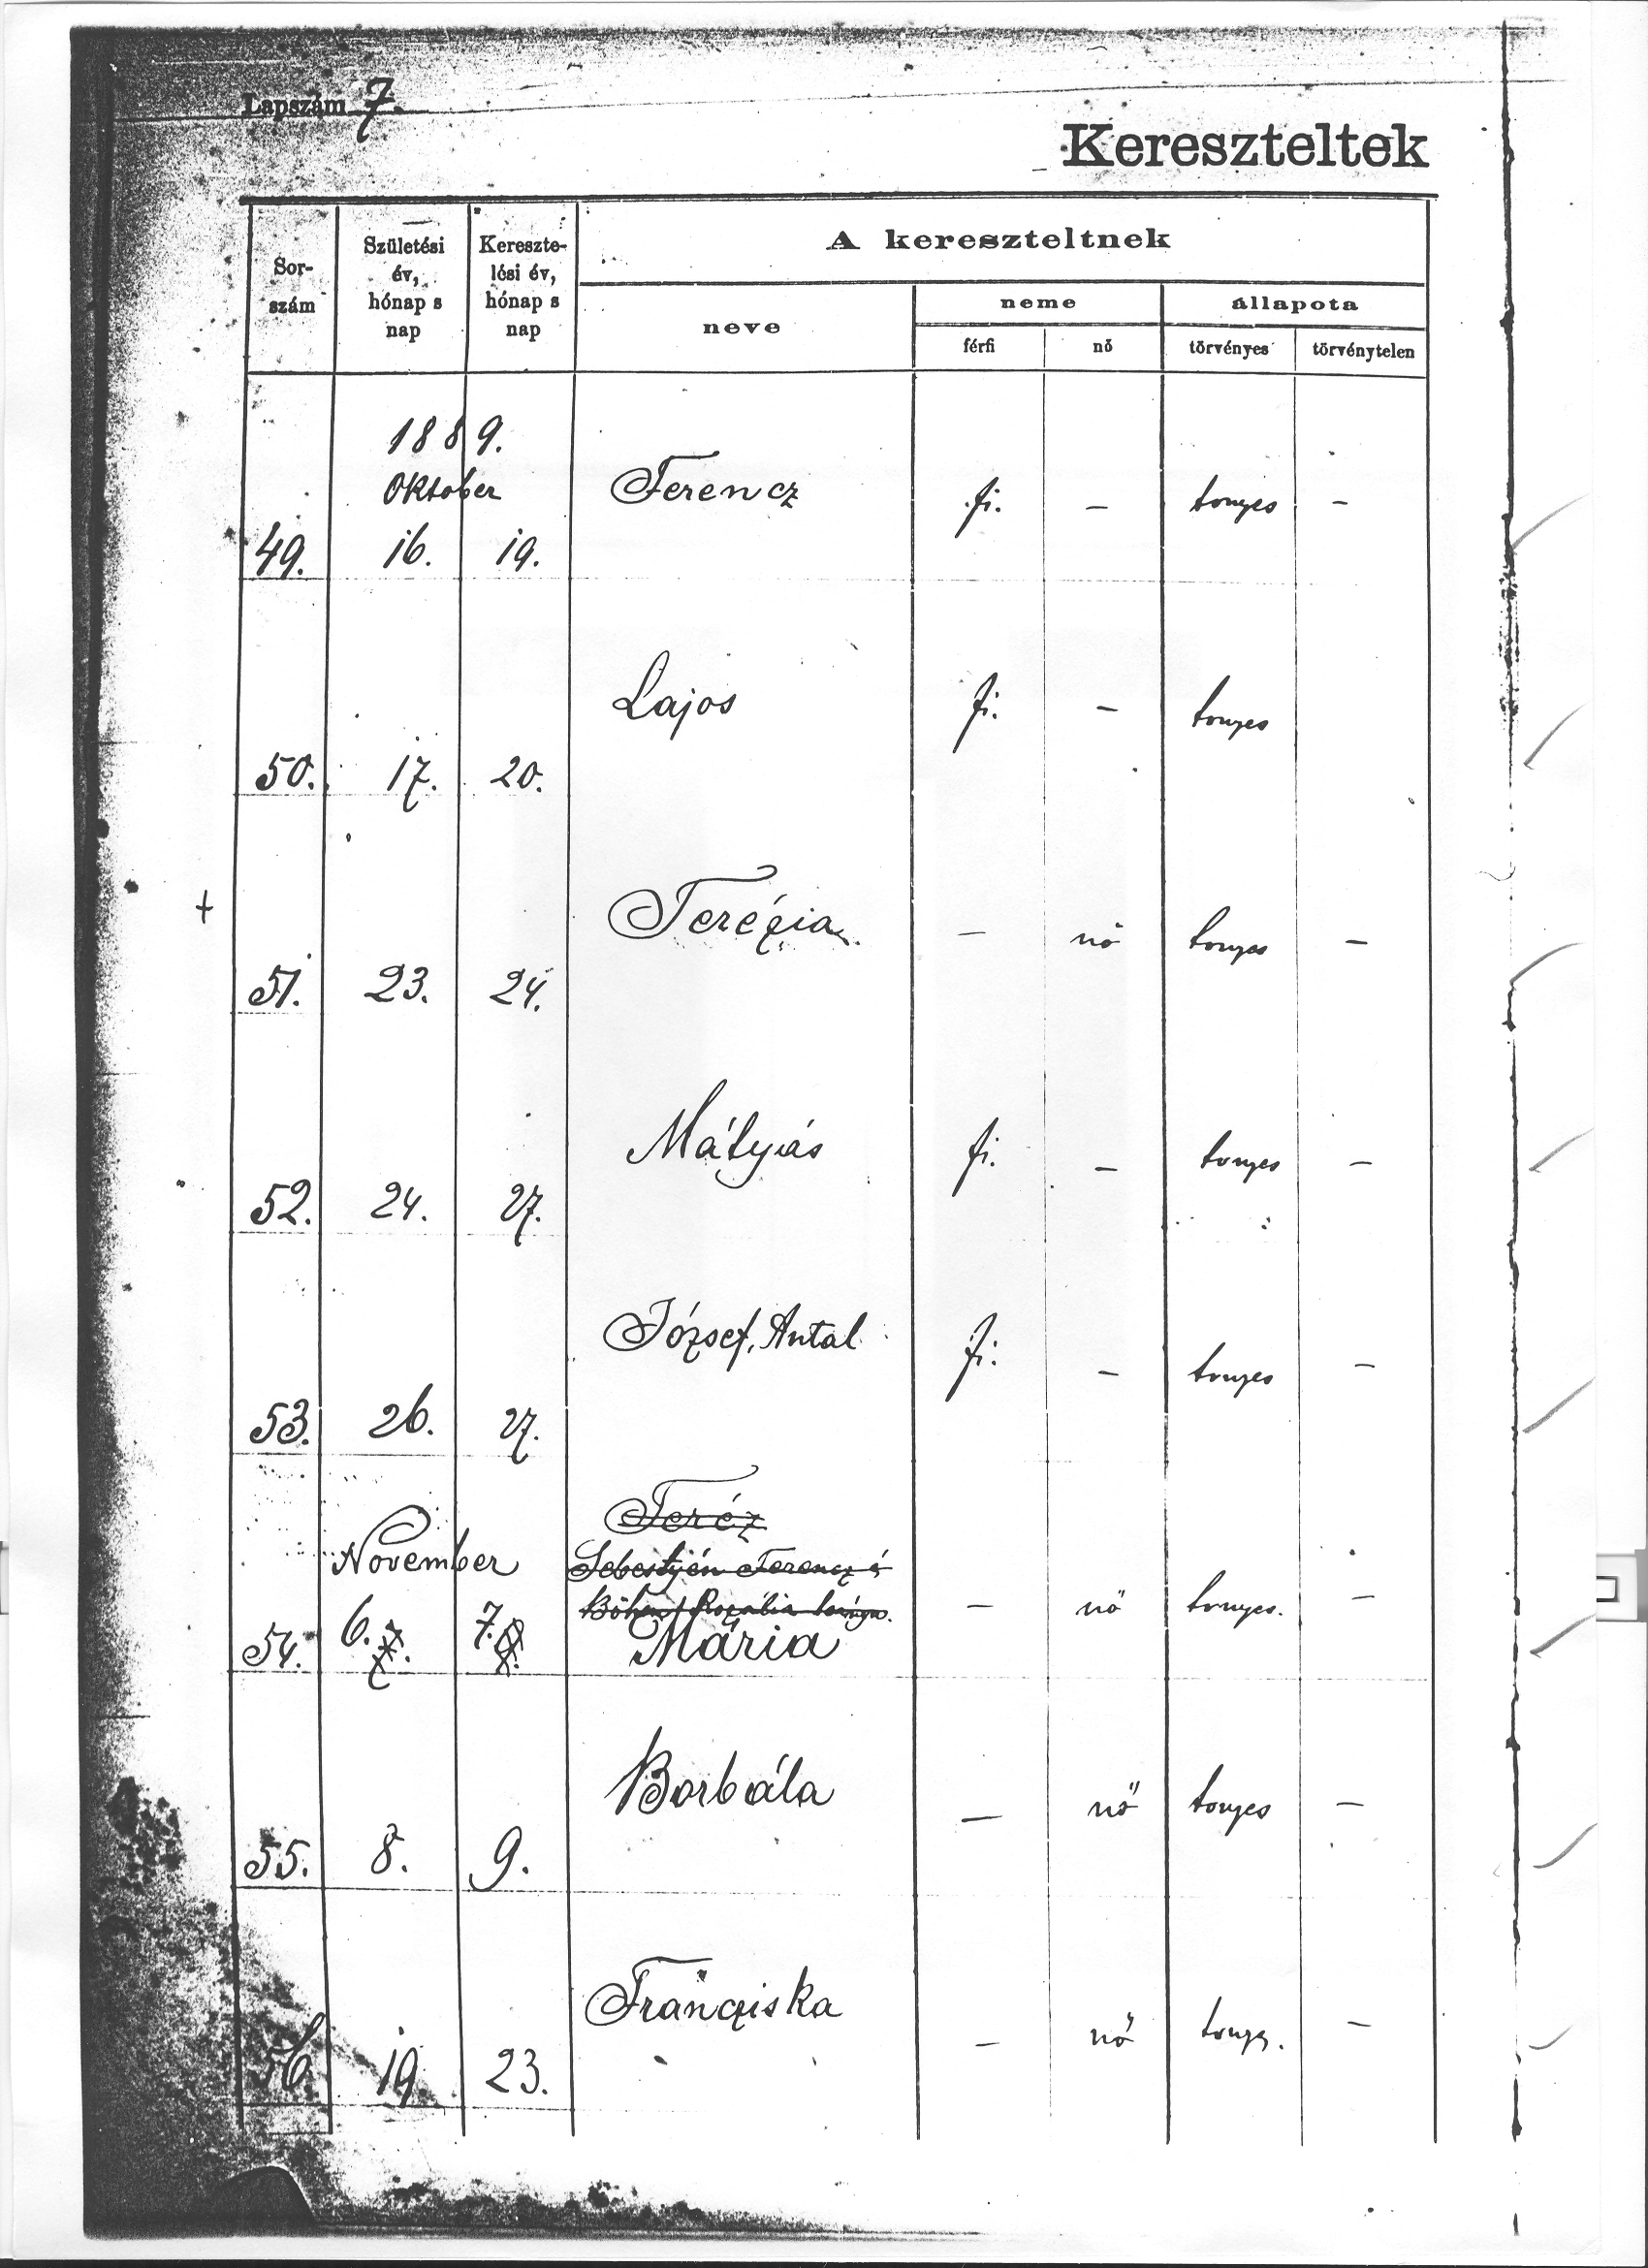 Lapszám 7.
Kereszteltek
Sor-
szám
Születési
év,
hónap s
nap
Kereszte-
lési év,
hónap s
nap
A kereszteltnek
neve
neme
állapota
férfi nő törvényes törvénytelen
1889.
Oktober
49. 16. 19. Ferencz fi. — tvnyes —
50. 17. 20. Lajos fi. — tvnyes
51. 23. 24. Terézia — nő tvnyes —
52. 24. 27. Mátyiás fi. — tvnyes —
53. 26. 27. József, Antal fi. — tvnyes —
November
Teréz
Sebestyén Ferencz é
Rozália leánya.
54. 6. 7. 7. 8. Mária — nő tvnyes. —
55. 8. 9. Borbála — nő tvnyes —
56 19 23. Francziska — nő tvnys. —